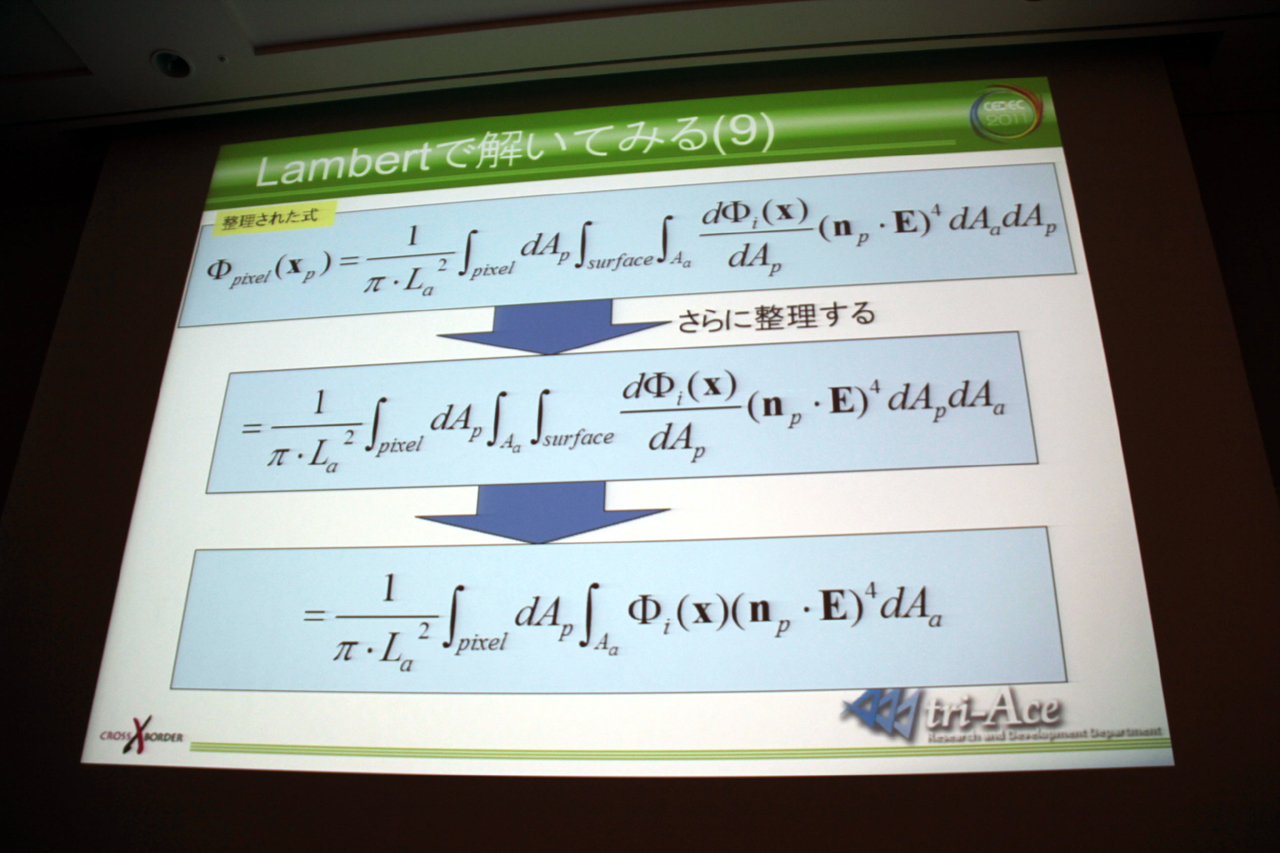 Lambertで解いてみる(9)
CEDEC
2011
整理された式
Φ_pixel(x_p) = 1/(π·L_a²) ∫_pixel dA_p ∫_surface ∫_{A_a} dΦ_i(x)/dA_p (n_p·E)⁴ dA_a dA_p
さらに整理する
= 1/(π·L_a²) ∫_pixel dA_p ∫_{A_a} ∫_surface dΦ_i(x)/dA_p (n_p·E)⁴ dA_p dA_a
= 1/(π·L_a²) ∫_pixel dA_p ∫_{A_a} Φ_i(x)(n_p·E)⁴ dA_a
CROSS X BORDER
tri-Ace
Research and Development Department